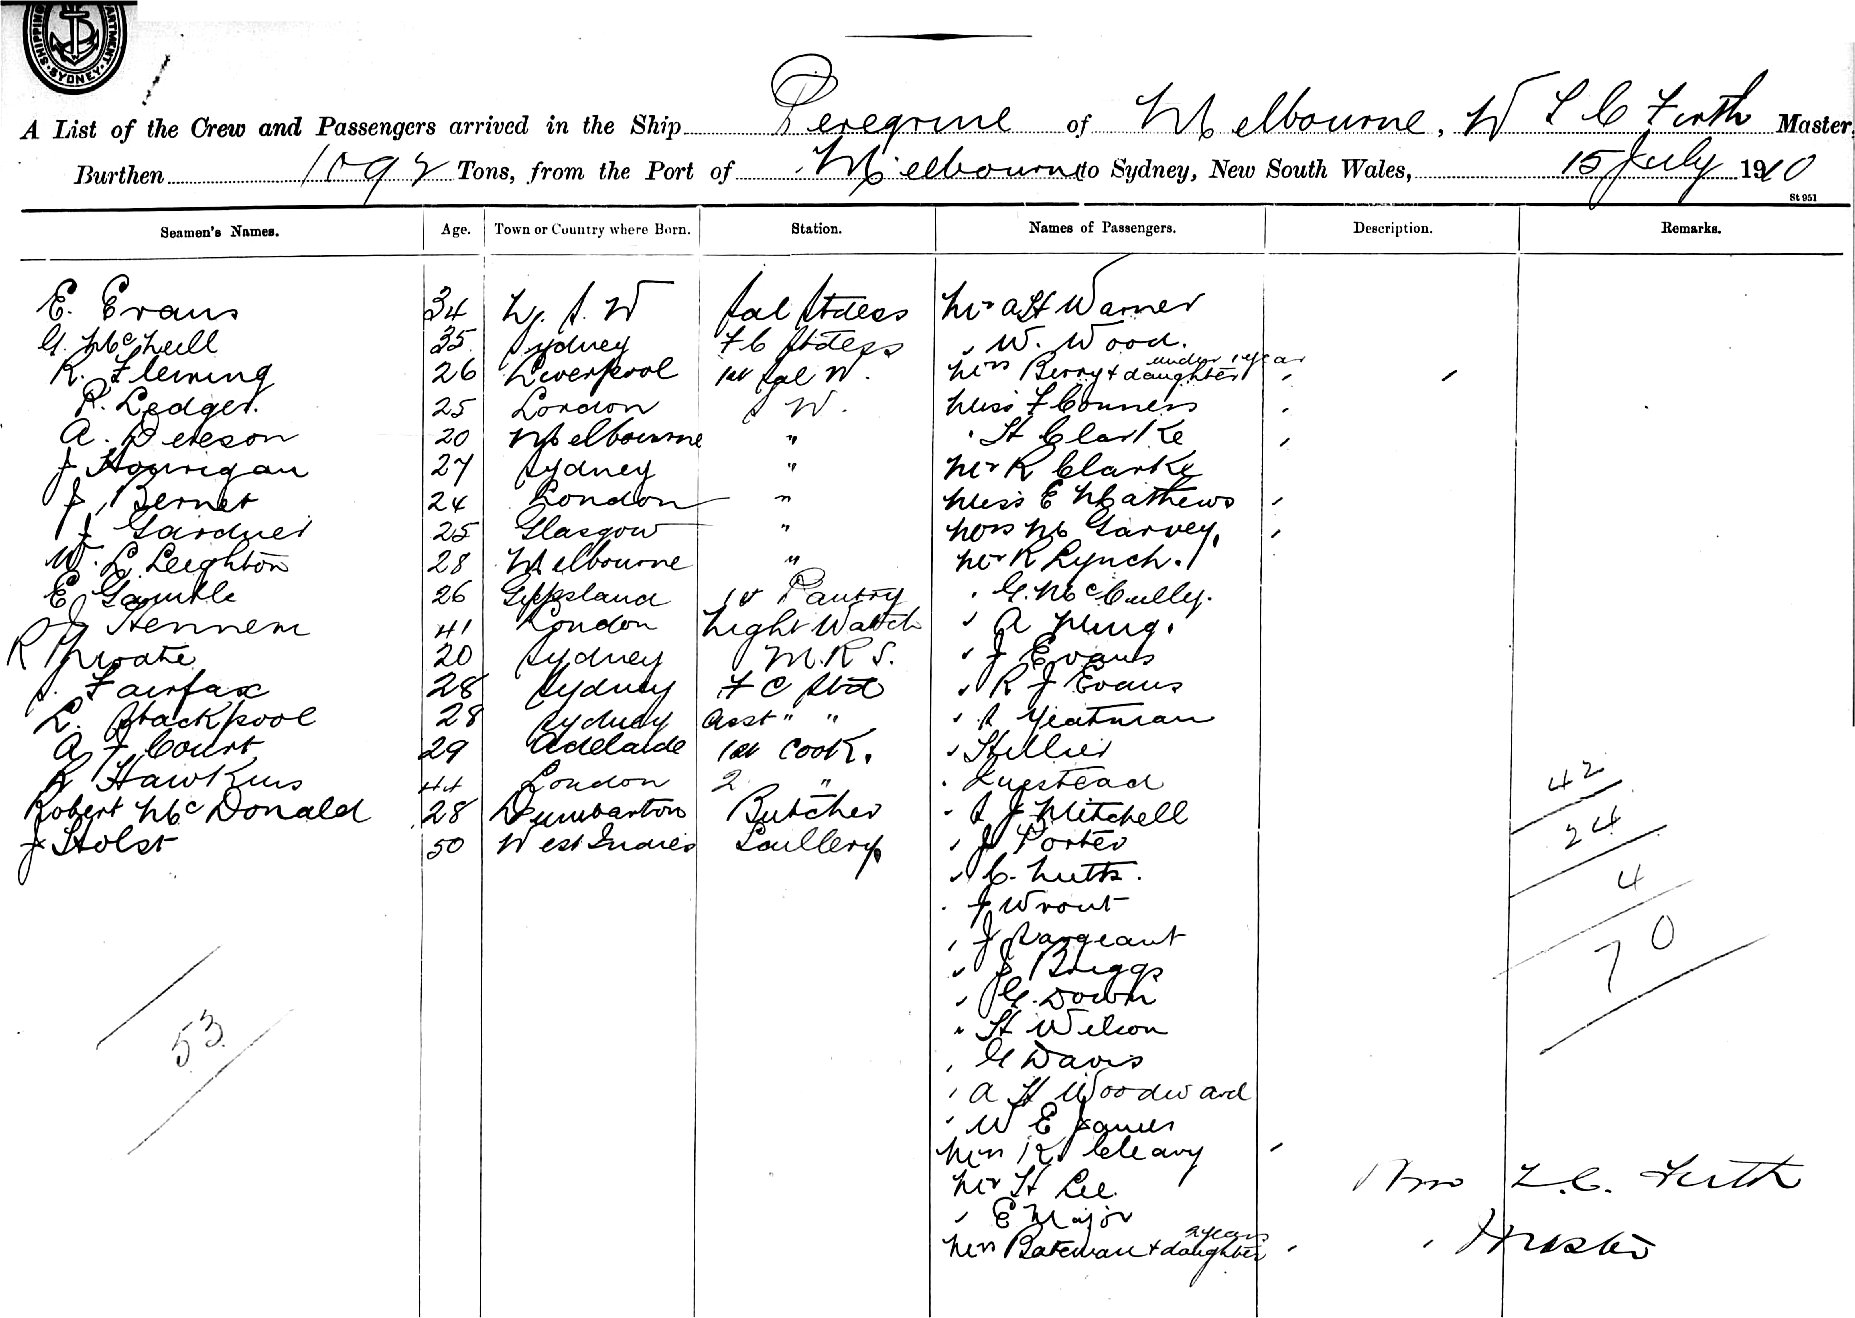 SHIPPING DEPARTMENT SYDNEY
A List of the Crew and Passengers arrived in the Ship Peregrine of Melbourne, W L C Firth Master,
Burthen 1092 Tons, from the Port of Melbourne to Sydney, New South Wales, 15 July 1910
St 951
Seamen's Names. Age. Town or Country where Born. Station. Names of Passengers. Description. Remarks.
E. Evans 34 N. S. W Sal Stdess Mr A H Warner
G. McNeill 35 Sydney F C Stdess " W. Wood.
R. Fleming 26 Liverpool 1st Sal W. Mrs Berry + daughter under 1 year
R. Ledger. 25 London S W. Miss F Conners
A. Peterson 20 Melbourne " " H Clarke
J Hourigan 27 Sydney " Mr R Clarke
J. Bernet 24 London " Miss E Mathews
J Gardner 25 Glasgow " Mrs M Garvey,
W. L Leighton 28 Melbourne " Mr R Lynch.
E Gamble 26 Gippsland 1st Pantry " G. McCulley.
J Hennem 41 London Night Watch " A
R 20 Sydney M.R S. " J Evans
S. Fairfax 28 Sydney F C Std " R J Evans
L. Stackpool 28 Sydney Asst " " " S Yeatman
A F Court 29 Adelaide 1st Cook. " Hillier
R Hawkins 44 London 2 " "
Robert McDonald 28 Dumbarton Butcher " S J Mitchell
J Holst 50 West Indies Scullery " J Porter
" C.
" J Wrout
" J Sargeant
" J Briggs
" G. Down
" H Wilson
" G Davis
" A H Woodward
" W E James
Mrs K. Cleary
Mr H Lee.
" E Major
Mrs Bateman + daughter 2 years
42
24
4
70
53
Wm L. C. Firth
Master